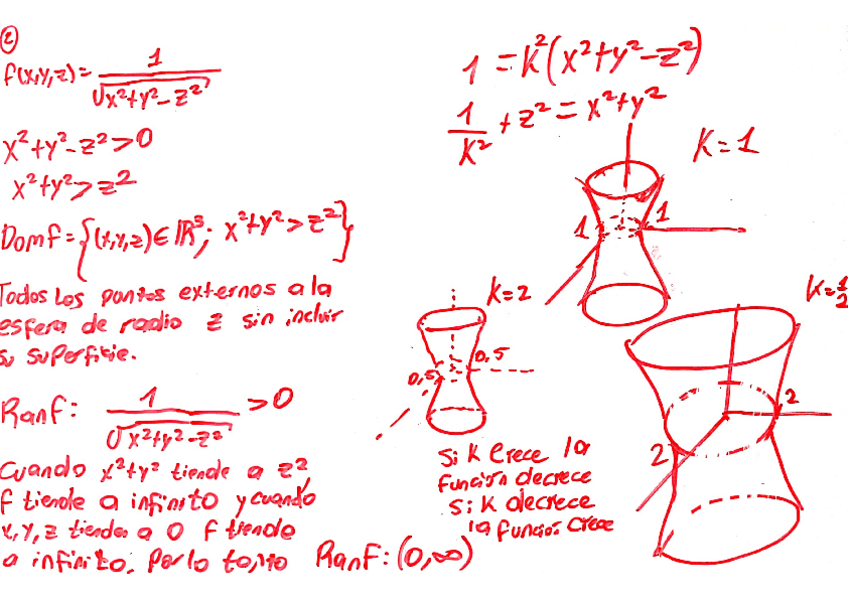 ②
f(x,y,z)= 1/√(x²+y²-z²)
x²+y²-z²>0
x²+y²>z²
Domf={(x,y,z)∈ℝ³; x²+y²>z²}
Todos los puntos externos a la
esfera de radio z sin incluir
su superficie.
Ranf: 1/√(x²+y²-z²) >0
Cuando x²+y² tiende a z²,
f tiende a infinito y cuando
x,y,z tienden a 0 f tiende
a infinito. Por lo tanto Ranf:(0,∞)
1=K²(x²+y²-z²)
1/K² +z²=x²+y²
K=1
1 1
K=2
0,5
0,5
K=1/2
2
2
Si K crece la
función decrece
Si K decrece
la función crece